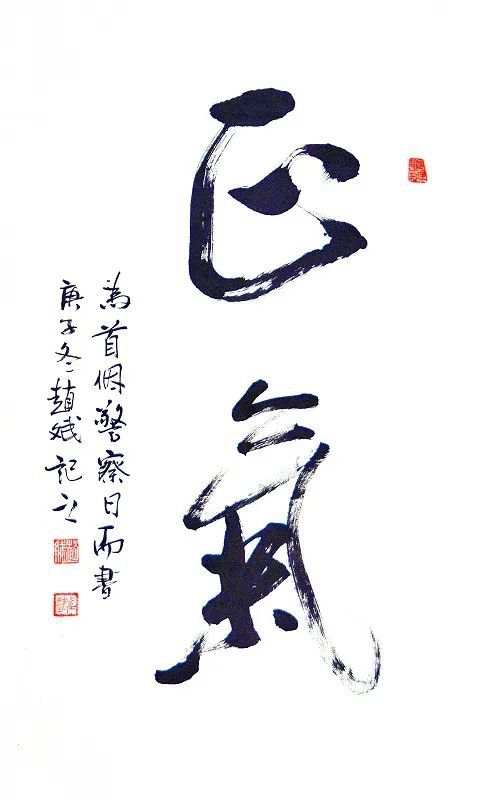 正氣
為首個警察日而書
庚子冬趙斌記之